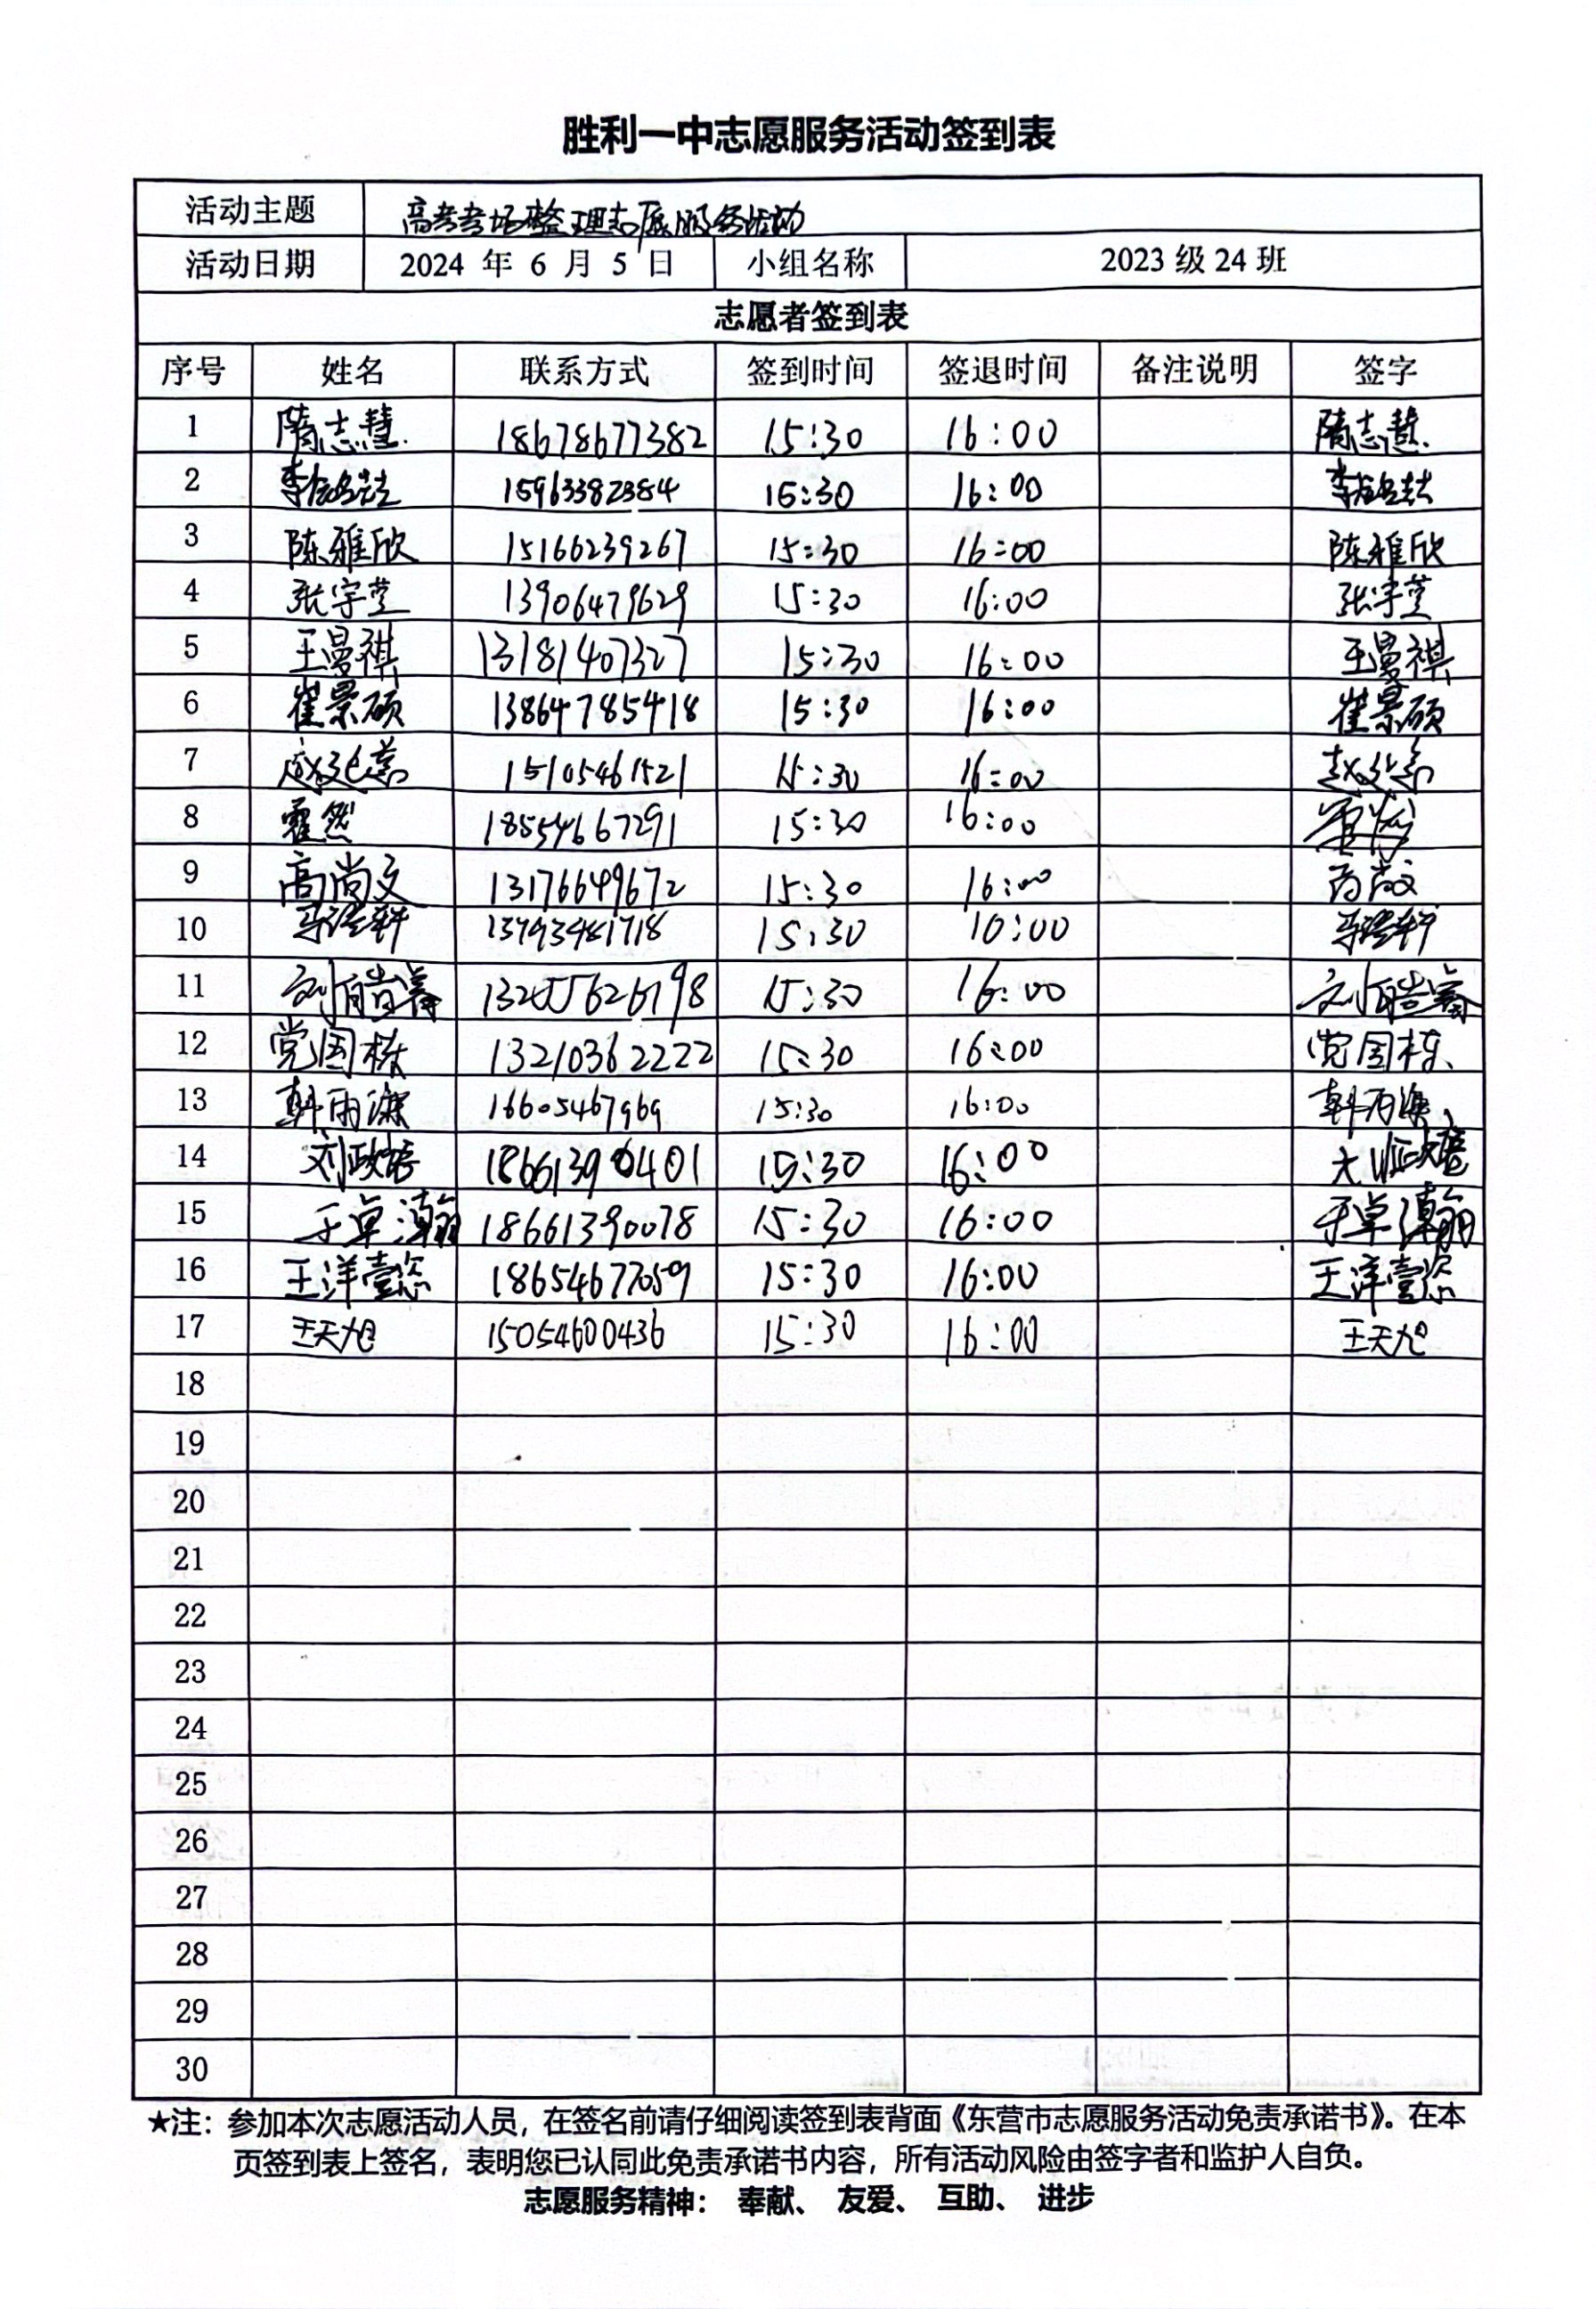 胜利一中志愿服务活动签到表
活动主题 高考考场整理志愿服务活动
活动日期 2024 年 6 月 5 日 小组名称 2023 级 24 班
志愿者签到表
序号 姓名 联系方式 签到时间 签退时间 备注说明 签字
1 隋志慧 18678677382 15:30 16:00 隋志慧
2 15963382384 15:30 16:00
3 陈雅欣 15166239267 15:30 16:00 陈雅欣
4 张宇萱 13906479629 15:30 16:00 张宇萱
5 王曼祺 13181407327 15:30 16:00 王曼祺
6 崔景硕 13864785418 15:30 16:00 崔景硕
7 15105461521 15:30 16:00
8 霍然 18554667291 15:30 16:00 霍然
9 高尚文 13176649672 15:30 16:00 高尚文
10 13793481718 15:30 16:00
11 15:30 16:00
12 党国栋 13210362222 15:30 16:00 党国栋
13 16605467969 15:30 16:00
14 18661390401 15:30 16:00
15 于卓瀚 18661390078 15:30 16:00 于卓瀚
16 王洋壹恣 18654677059 15:30 16:00 王洋壹恣
17 王天旭 15054600436 15:30 16:00 王天旭
18
19
20
21
22
23
24
25
26
27
28
29
30
★注：参加本次志愿活动人员，在签名前请仔细阅读签到表背面《东营市志愿服务活动免责承诺书》。在本
页签到表上签名，表明您已认同此免责承诺书内容，所有活动风险由签字者和监护人自负。
志愿服务精神： 奉献、 友爱、 互助、 进步